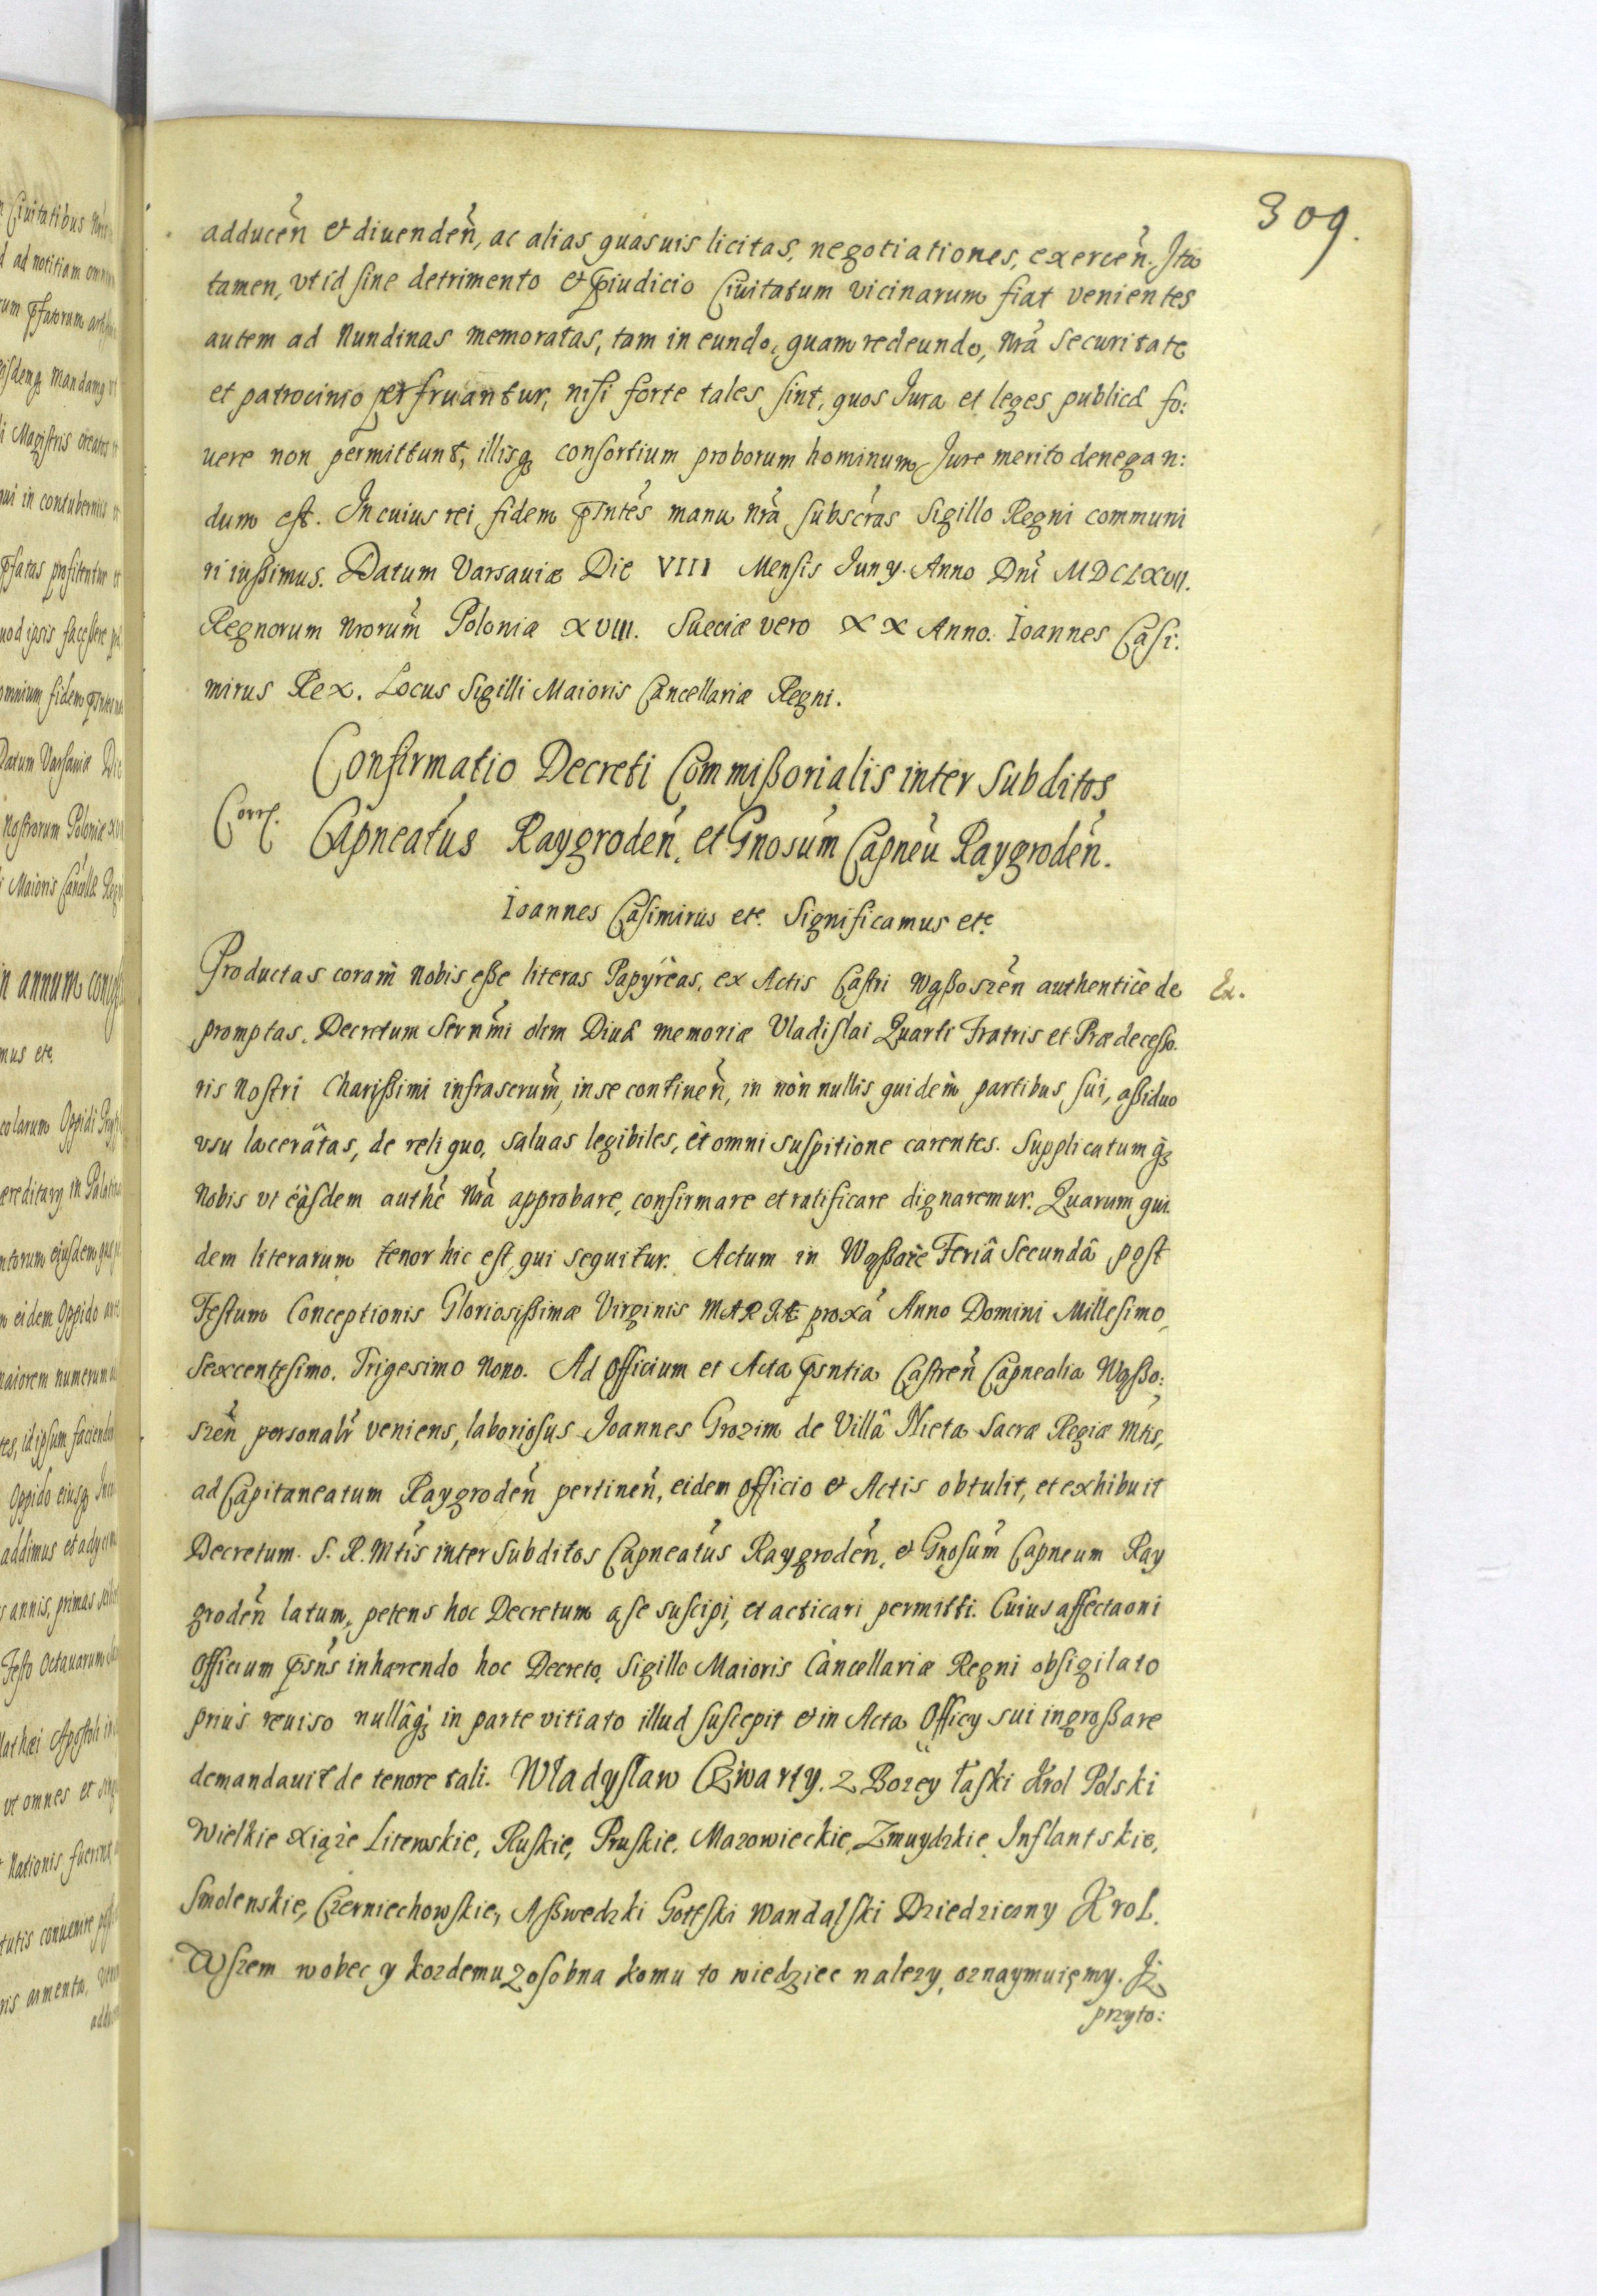 309.
adducen̄ et diuenden̄, ac alias quasuis licitas, negotiationes, exercen̄. Ita
tamen, vt id sine detrimento et p̄iudicio Ciuitatum vicinarum fiat venientes
autem ad Nundinas memoratas, tam in eundo, quam redeundo, nr̄a securitate
et patrocinio perfruantur, nisi forte tales sint, quos Iura et leges publicæ fo:
uere non permittunt, illisq; consortium proborum hominum Iure merito denegan:
dum est. In cuius rei fidem p̄sntes manu nr̄a subscr̄as Sigillo Regni communi
ri iussimus. Datum Varsauiæ Die VIII Mensis Iuny. Anno Dni MDCLXVII.
Regnorum Nrorum̄ Poloniæ XVIII. Sueciæ vero XX Anno. Ioannes Casi:
mirus Rex. Locus Sigilli Maioris Cancellariæ Regni.
Confirmatio Decreti Commißorialis inter Subditos
Corr.
Capneatus Raygroden̄, et Gnosum̄ Capneu̅ Raygroden̄.
Ioannes Casimirus etc. Significamus etc.
Productas coram Nobis eße literas Papyreas, ex Actis Castri Wąßoszen̄ authentice de
Ex.
promptas, Decretum Sernm̄i olim Diuæ memoriæ Vladislai Quarti Fratris et Prædeceßo.
ris Nostri Charißimi infrascrum̄, in se continen̄, in non nullis quidem partibus, sui, aßiduo
vsu laceratas, de reliquo, saluas legibiles, et omni suspitione carentes. Supplicatumq;
Nobis vt easdem authē nr̄a approbare, confirmare et ratificare dignaremur. Quarum qui
dem literarum tenor hic est, qui sequitur. Actum in Wąßoße Feriâ Secundâ post
Festum Conceptionis Gloriosißimæ Virginis MARIÆ proxa Anno Domini Millesimo,
Sexcentesimo. Trigesimo Nono. Ad Officium et Acta p̄sntia Castren̄ Capnealia Wąßo:
szen̄ personalr̄ veniens, laboriosus Ioannes Grozim de Villâ Nieta Sacræ Regiæ Mtis,
ad Capitaneatum Raygroden̄ pertinen̄, eidem officio et Actis obtulit, et exhibuit
Decretum. S. R. Mtis inter Subditos Capneatus Raygroden̄, et Gnosum̄ Capneum Ray
groden̄ latum, petens hoc Decretum a se suscipi, et acticari permitti. Cuius affectaoni
Officium p̄sns inhærendo hoc Decreto, Sigillo Maioris Cancellariæ Regni obsigilato
prius reuiso nullâq; in parte vitiato illud suscepit et in Acta Officy sui ingroßare
demandauit de tenore tali. Władysław Czwarty. z Bozey łaski Krol Polski
Wielkie Xiąże Litewskie, Ruskie, Pruskie, Mazowieckie, Zmuydzkie, Inflantskie,
Smolenskie, Czerniechowskie, A ßwedzki Gottski Wandalski Dziedziczny Krol.
Wszem wobec y kozdemu z osobna komu to wiedziec nalezy, oznaymuięmy. Iż
przyto: